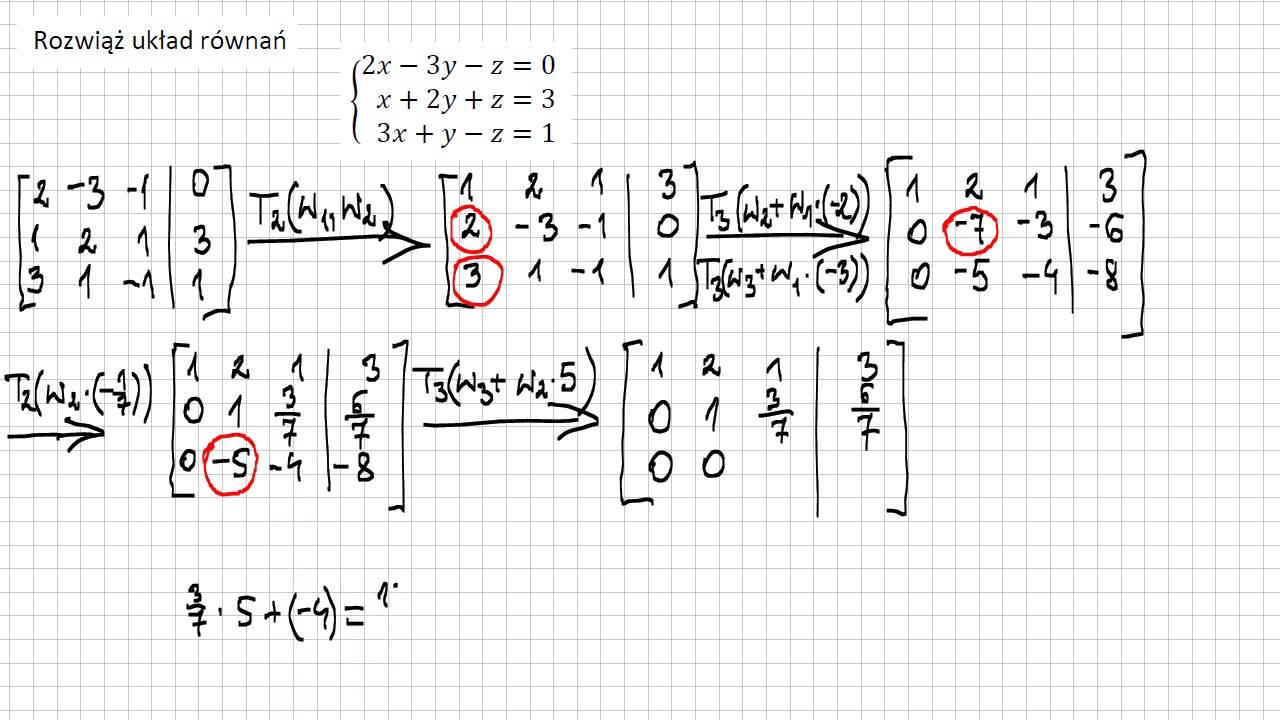 Rozwiąż układ równań
2x − 3y − z = 0
x + 2y + z = 3
3x + y − z = 1
2 -3 -1 | 0
1 2 1 | 3
3 1 -1 | 1
T2(W1, W2)
1 2 1 | 3
2 -3 -1 | 0
3 1 -1 | 1
T3(W2+W1·(-2))
T3(W3+W1·(-3))
1 2 1 | 3
0 -7 -3 | -6
0 -5 -4 | -8
T2(W2·(-1/7))
1 2 1 | 3
0 1 3/7 | 6/7
0 -5 -4 | -8
T3(W3+W2·5)
1 2 1 | 3
0 1 3/7 | 6/7
0 0
3/7 · 5 + (-4) = 1